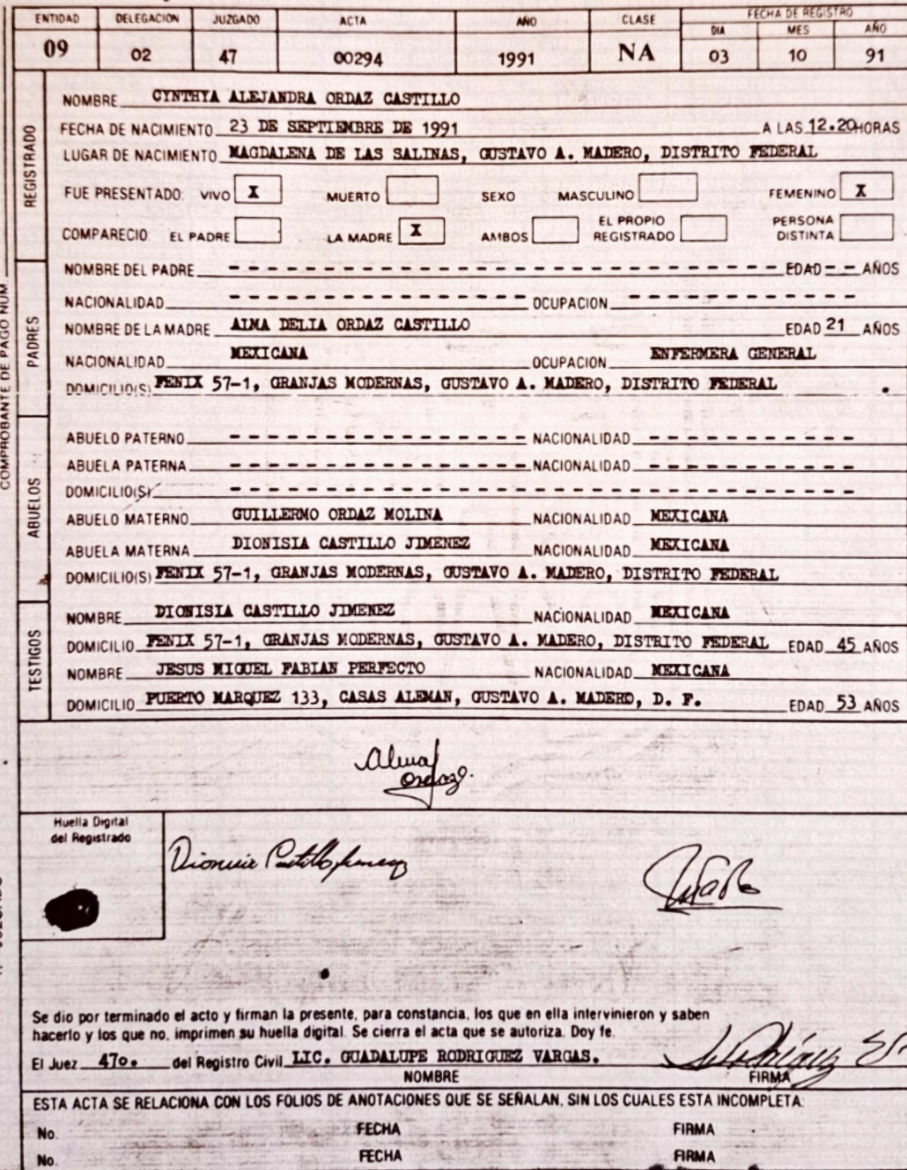 ENTIDAD DELEGACION JUZGADO ACTA AÑO CLASE FECHA DE REGISTRO
DIA MES AÑO
09 02 47 00294 1991 NA 03 10 91
REGISTRADO
NOMBRE CYNTHYA ALEJANDRA ORDAZ CASTILLO
FECHA DE NACIMIENTO 23 DE SEPTIEMBRE DE 1991 A LAS 12.20 HORAS
LUGAR DE NACIMIENTO MAGDALENA DE LAS SALINAS, GUSTAVO A. MADERO, DISTRITO FEDERAL
FUE PRESENTADO: VIVO X MUERTO SEXO MASCULINO FEMENINO X
COMPARECIO: EL PADRE LA MADRE X AMBOS EL PROPIO REGISTRADO PERSONA DISTINTA
PADRES
NOMBRE DEL PADRE - - - - - - - - - - - - - - - - - - - - - - - - EDAD - - AÑOS
NACIONALIDAD - - - - - - - - - - - - OCUPACION - - - - - - - - - -
NOMBRE DE LA MADRE ALMA DELIA ORDAZ CASTILLO EDAD 21 AÑOS
NACIONALIDAD MEXICANA OCUPACION ENFERMERA GENERAL
DOMICILIO(S) FENIX 57-1, GRANJAS MODERNAS, GUSTAVO A. MADERO, DISTRITO FEDERAL
ABUELOS
ABUELO PATERNO - - - - - - - - - - - - NACIONALIDAD - - - - - - - - -
ABUELA PATERNA - - - - - - - - - - - - NACIONALIDAD - - - - - - - - -
DOMICILIO(S) - - - - - - - - - - - - - - - - - - - - - - - - - -
ABUELO MATERNO GUILLERMO ORDAZ MOLINA NACIONALIDAD MEXICANA
ABUELA MATERNA DIONISIA CASTILLO JIMENEZ NACIONALIDAD MEXICANA
DOMICILIO(S) FENIX 57-1, GRANJAS MODERNAS, GUSTAVO A. MADERO, DISTRITO FEDERAL
TESTIGOS
NOMBRE DIONISIA CASTILLO JIMENEZ NACIONALIDAD MEXICANA
DOMICILIO FENIX 57-1, GRANJAS MODERNAS, GUSTAVO A. MADERO, DISTRITO FEDERAL EDAD 45 AÑOS
NOMBRE JESUS MIGUEL FABIAN PERFECTO NACIONALIDAD MEXICANA
DOMICILIO PUERTO MARQUEZ 133, CASAS ALEMAN, GUSTAVO A. MADERO, D. F. EDAD 53 AÑOS
COMPROBANTE DE PAGO NUM
Alma
Ordaz
Huella Digital
del Registrado
Dionisia Castillo Jimenez
Se dio por terminado el acto y firman la presente, para constancia, los que en ella intervinieron y saben
hacerlo y los que no, imprimen su huella digital. Se cierra el acta que se autoriza. Doy fe.
El Juez 47o. del Registro Civil LIC. GUADALUPE RODRIGUEZ VARGAS.
NOMBRE FIRMA
ESTA ACTA SE RELACIONA CON LOS FOLIOS DE ANOTACIONES QUE SE SEÑALAN, SIN LOS CUALES ESTA INCOMPLETA:
No. FECHA FIRMA
No. FECHA FIRMA